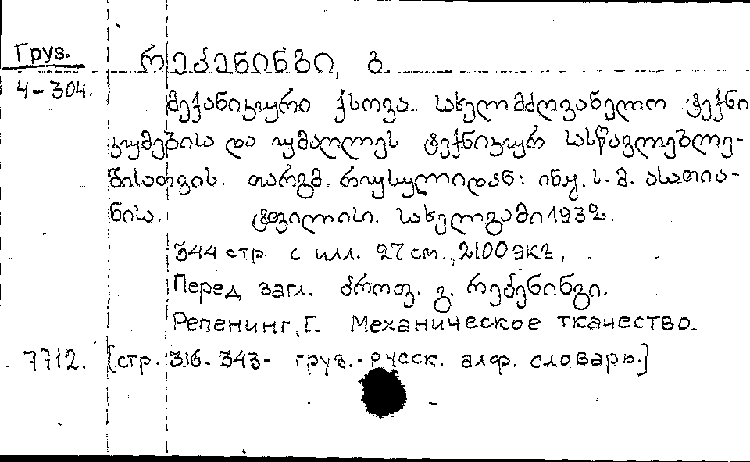 Груз.
4-304.
რეპენინგი, გ.
მექანიკური ქსოვა. სახელმძღვანელო ტექნი
კუმებისა და უმაღლეს ტექნიკურ სასწავლებლე-
ბისათვის. თარგმ. რუსულიდან: ინჟ. ს. მ. ასათია-
ნისა. ტფილისი. სახელგამი 1932.
344 стр с илл. 27 см., 2100 экз.,
Перед загл. პროფ. გ. რეპენინგი.
Репенинг, Г. Механическое ткачество.
7712. [стр. 316-343- груз.-русск. алф. словарь.]